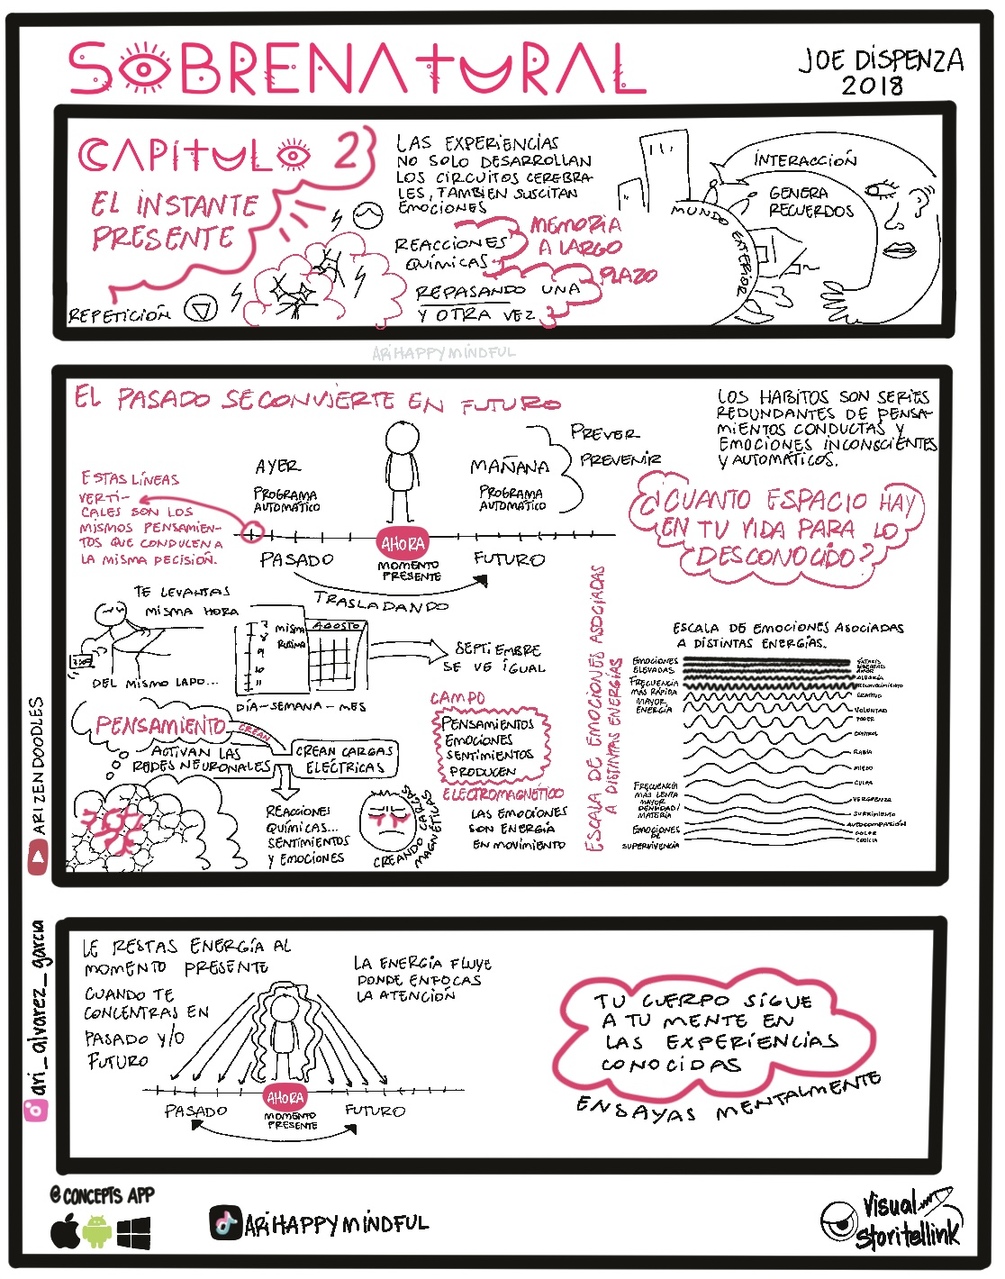 SOBRENATURAL
JOE DISPENZA
2018
CAPITULO 2
EL INSTANTE
PRESENTE
REPETICIÓN
LAS EXPERIENCIAS
NO SOLO DESARROLLAN
LOS CIRCUITOS CEREBRA-
LES, TAMBIEN SUSCITAN
EMOCIONES
REACCIONES
QUÍMICAS
MEMORIA
A LARGO
PLAZO
REPASANDO UNA
Y OTRA VEZ
INTERACCIÓN
GENERA
RECUERDOS
MUNDO EXTERIOR
ARIHAPPYMINDFUL
EL PASADO SE CONVIERTE EN FUTURO
ESTAS LÍNEAS
VERTI-
CALES SON LOS
MISMOS PENSAMIEN-
TOS QUE CONDUCEN A
LA MISMA DECISIÓN.
AYER
PROGRAMA
AUTOMÁTICO
MAÑANA
PROGRAMA
AUTOMÁTICO
PREVER
PREVENIR
PASADO
AHORA
MOMENTO
PRESENTE
FUTURO
TRASLADANDO
LOS HABITOS SON SERIES
REDUNDANTES DE PENSA-
MIENTOS CONDUCTAS Y
EMOCIONES INCONSCIENTES
Y AUTOMÁTICOS.
¿CUANTO ESPACIO HAY
EN TU VIDA PARA LO
DESCONOCIDO?
TE LEVANTAS
MISMA HORA
DEL MISMO LAPO...
MISMA
RUTINA
AGOSTO
DÍA-SEMANA-MES
SEPTIEMBRE
SE VE IGUAL
PENSAMIENTO
CREAN
ACTIVAN LAS
REDES NEURONALES
CREAN CARGAS
ELÉCTRICAS
REACCIONES
QUÍMICAS...
SENTIMIENTOS
Y EMOCIONES
CREANDO CARGAS
MAGNÉTICAS
CAMPO
PENSAMIENTOS
EMOCIONES
SENTIMIENTOS
PRODUCEN
ELECTROMAGNÉTICO
LAS EMOCIONES
SON ENERGÍA
EN MOVIMIENTO
ESCALA DE EMOCIONES ASOCIADAS
A DISTINTAS ENERGÍAS
ESCALA DE EMOCIONES ASOCIADAS
A DISTINTAS ENERGÍAS.
EMOCIONES
ELEVADAS
FRECUENCIA
MÁS RÁPIDA
MAYOR
ENERGÍA
FRECUENCIA
MÁS LENTA
MAYOR
DENSIDAD/
MATERIA
EMOCIONES
DE
SUPERVIVENCIA
AMOR
ALEGRÍA
VOLUNTAD
PODER
CONTROL
RABIA
MIEDO
CULPA
VERGÜENZA
SUFRIMIENTO
AUTOCOMPASIÓN
DOLOR
ARIZENDOODLES
ari_alvarez_garcia
LE RESTAS ENERGÍA AL
MOMENTO PRESENTE
CUANDO TE
CONCENTRAS EN
PASADO Y/O
FUTURO
LA ENERGÍA FLUYE
DONDE ENFOCAS
LA ATENCIÓN
PASADO
AHORA
MOMENTO
PRESENTE
FUTURO
TU CUERPO SIGUE
A TU MENTE EN
LAS EXPERIENCIAS
CONOCIDAS
ENSAYAS MENTALMENTE
@CONCEPTS APP
ARIHAPPYMINDFUL
Visual
Storitellink